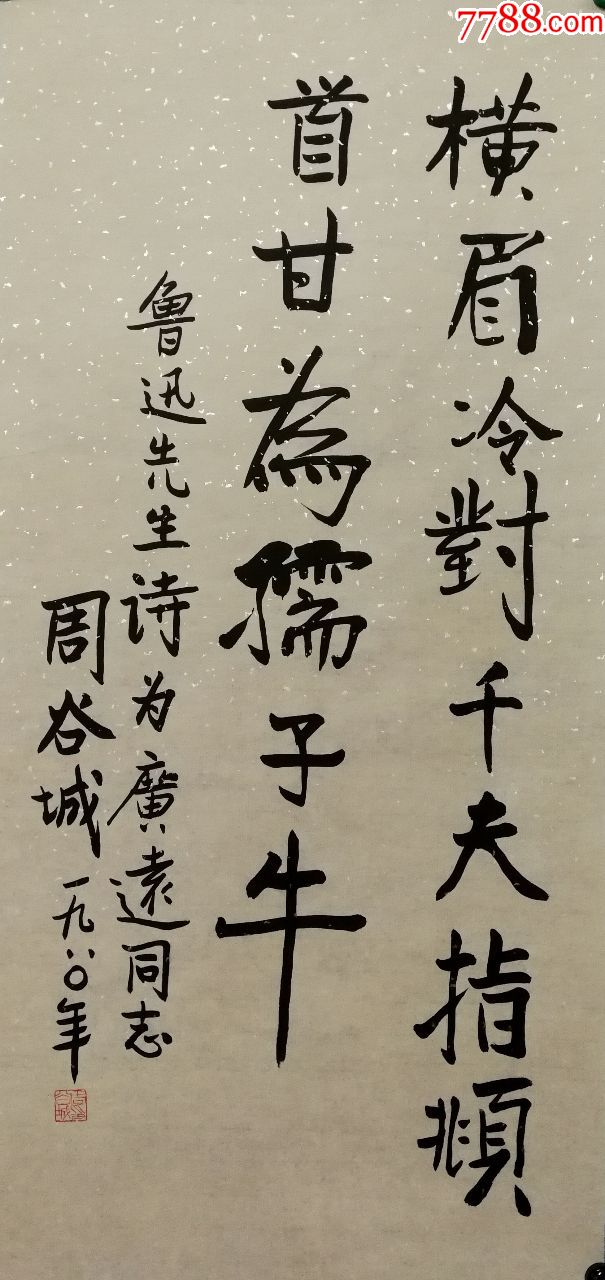 7788.com
横眉冷對千夫指頫
首甘為孺子牛
鲁迅先生诗为廣遠同志
周谷城一九八〇年